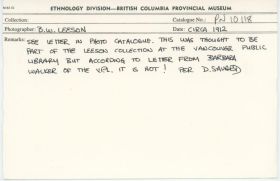 ETHNOLOGY DIVISION—BRITISH COLUMBIA PROVINCIAL MUSEUM
Collection: Catalogue No.: PN 10118
Photographer: B.W. LEESON Date: CIRCA 1912
Remarks: SEE LETTER IN PHOTO CATALOGUE. THIS WAS THOUGHT TO BE
PART OF THE LEESON COLLECTION AT THE VANCOUVER PUBLIC
LIBRARY BUT ACCORDING TO LETTER FROM BARBARA
WALKER OF THE VPL, IT IS NOT! PER D. SAVARD